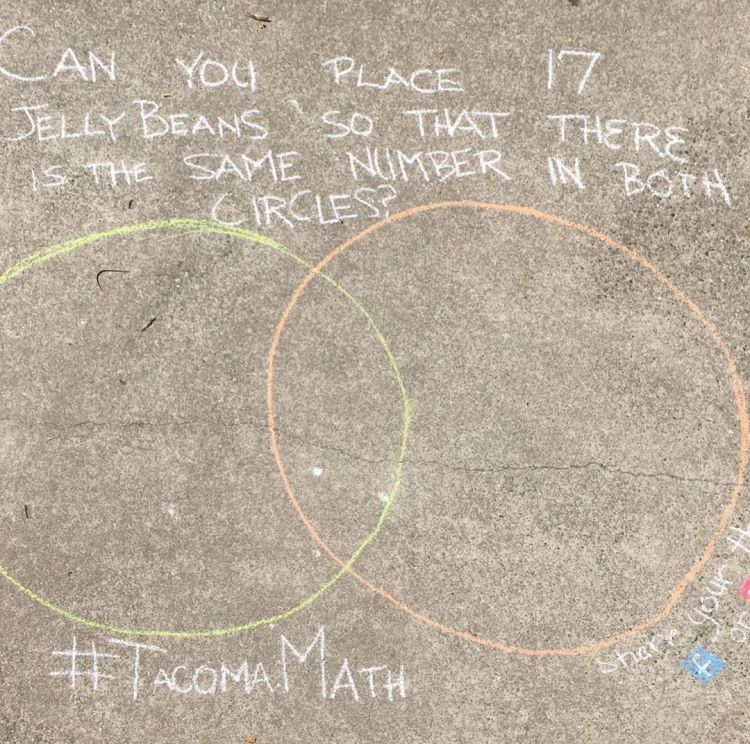 CAN YOU PLACE 17
JELLY BEANS SO THAT THERE
IS THE SAME NUMBER IN BOTH
CIRCLES?
#TACOMAMATH
share your